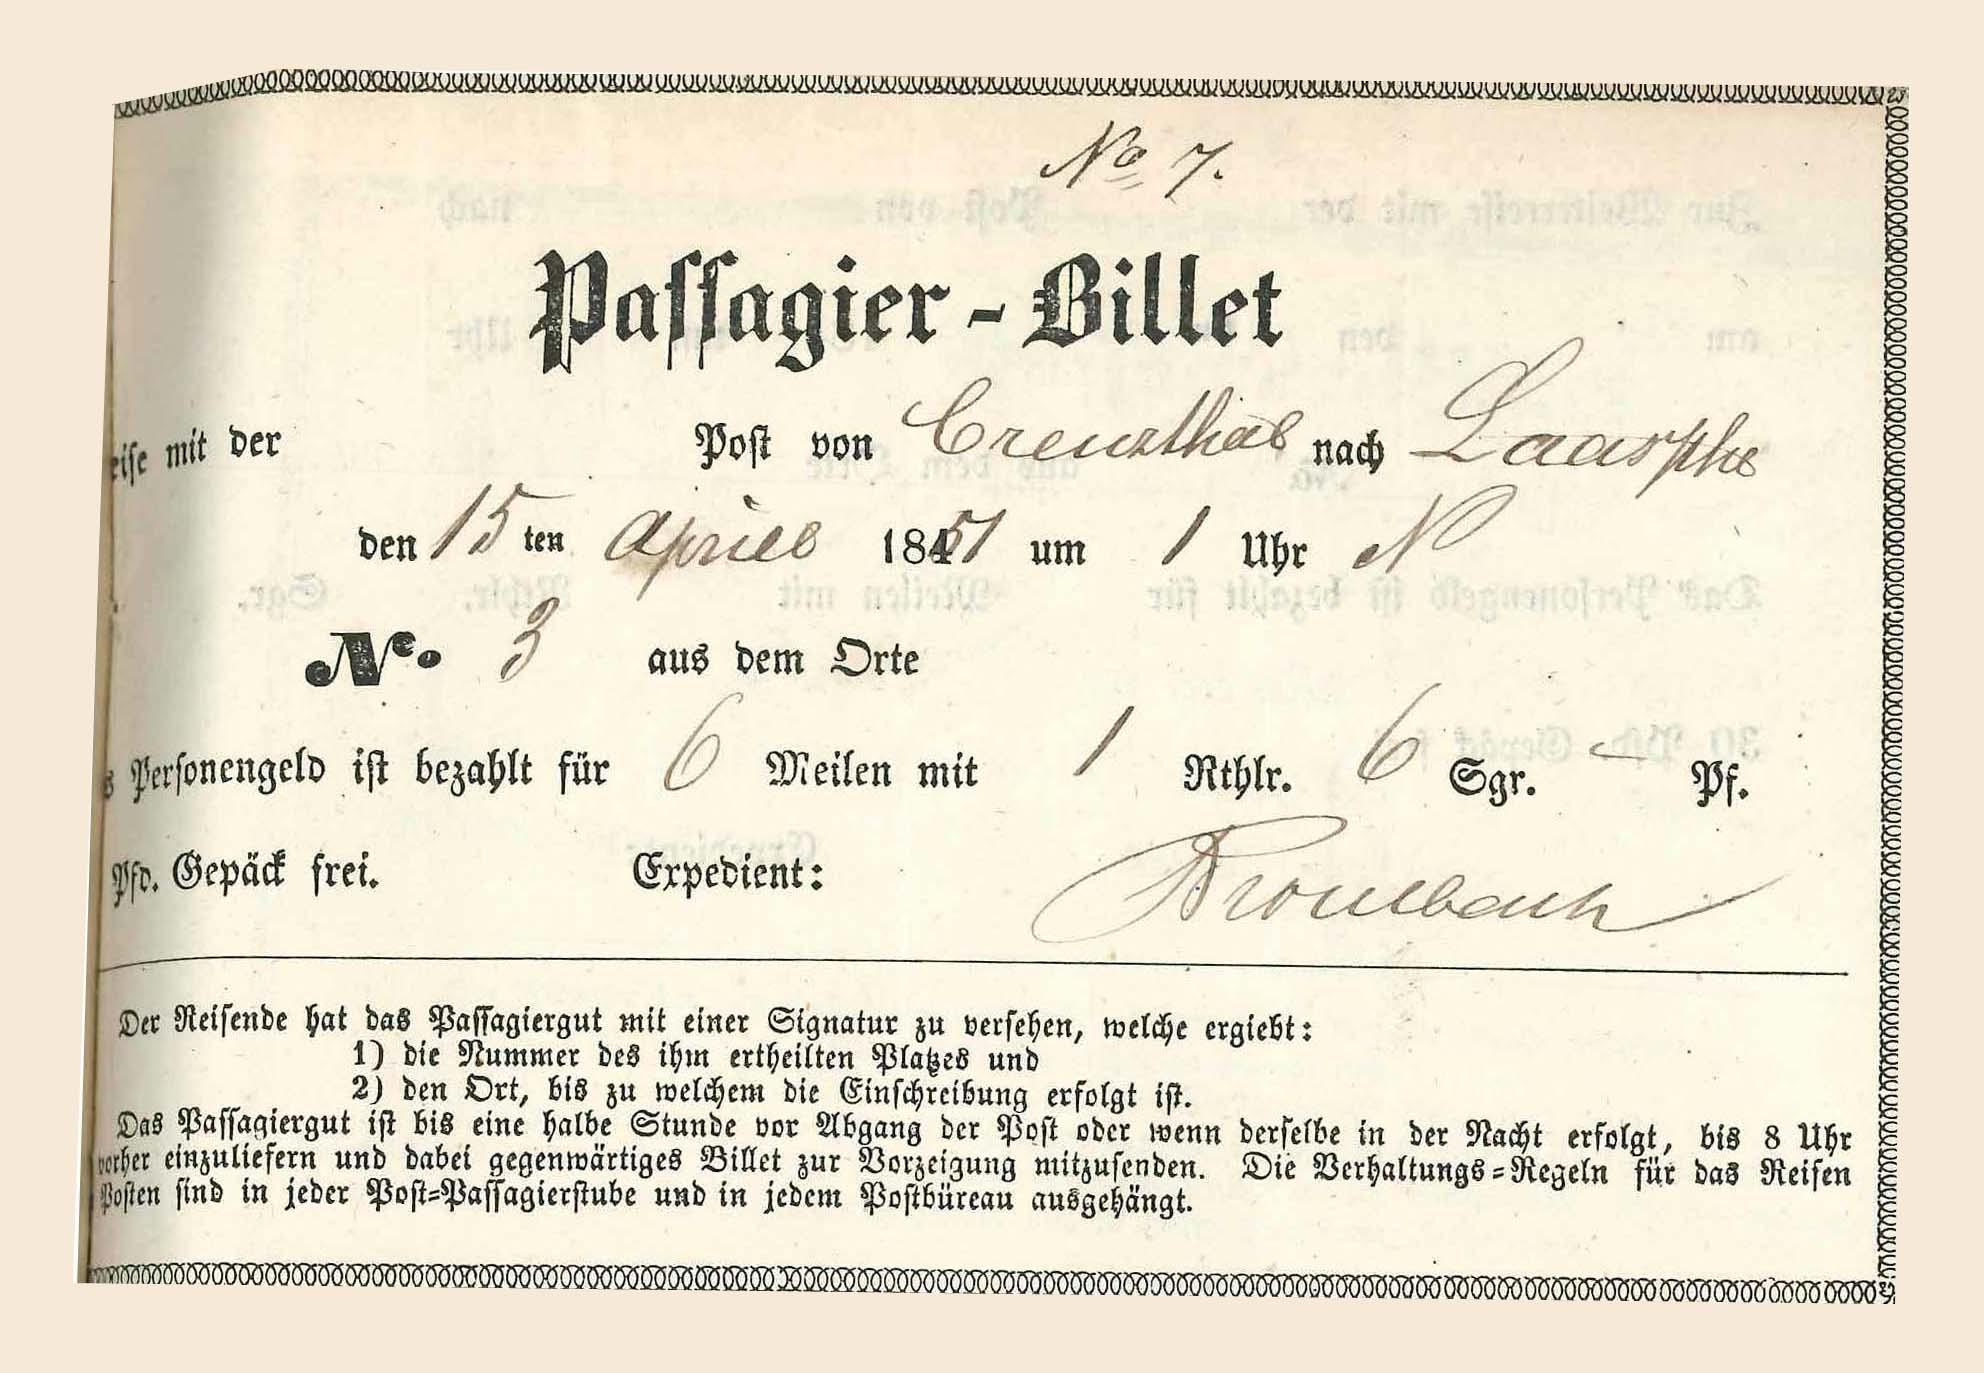 No 7.
Passagier-Billet
eise mit der Post von Creuzthal nach Laasphe
den 15 ten April 1851 um 1 Uhr N
No. 3 aus dem Orte
s Personengeld ist bezahlt für 6 Meilen mit 1 Rthlr. 6 Sgr. — Pf.
Pfd. Gepäck frei. Expedient:
Der Reisende hat das Passagiergut mit einer Signatur zu versehen, welche ergiebt:
1) die Nummer des ihm ertheilten Platzes und
2) den Ort, bis zu welchem die Einschreibung erfolgt ist.
Das Passagiergut ist bis eine halbe Stunde vor Abgang der Post oder wenn derselbe in der Nacht erfolgt, bis 8 Uhr
vorher einzuliefern und dabei gegenwärtiges Billet zur Vorzeigung mitzusenden. Die Verhaltungs=Regeln für das Reisen
Posten sind in jeder Post=Passagierstube und in jedem Postbüreau ausgehängt.